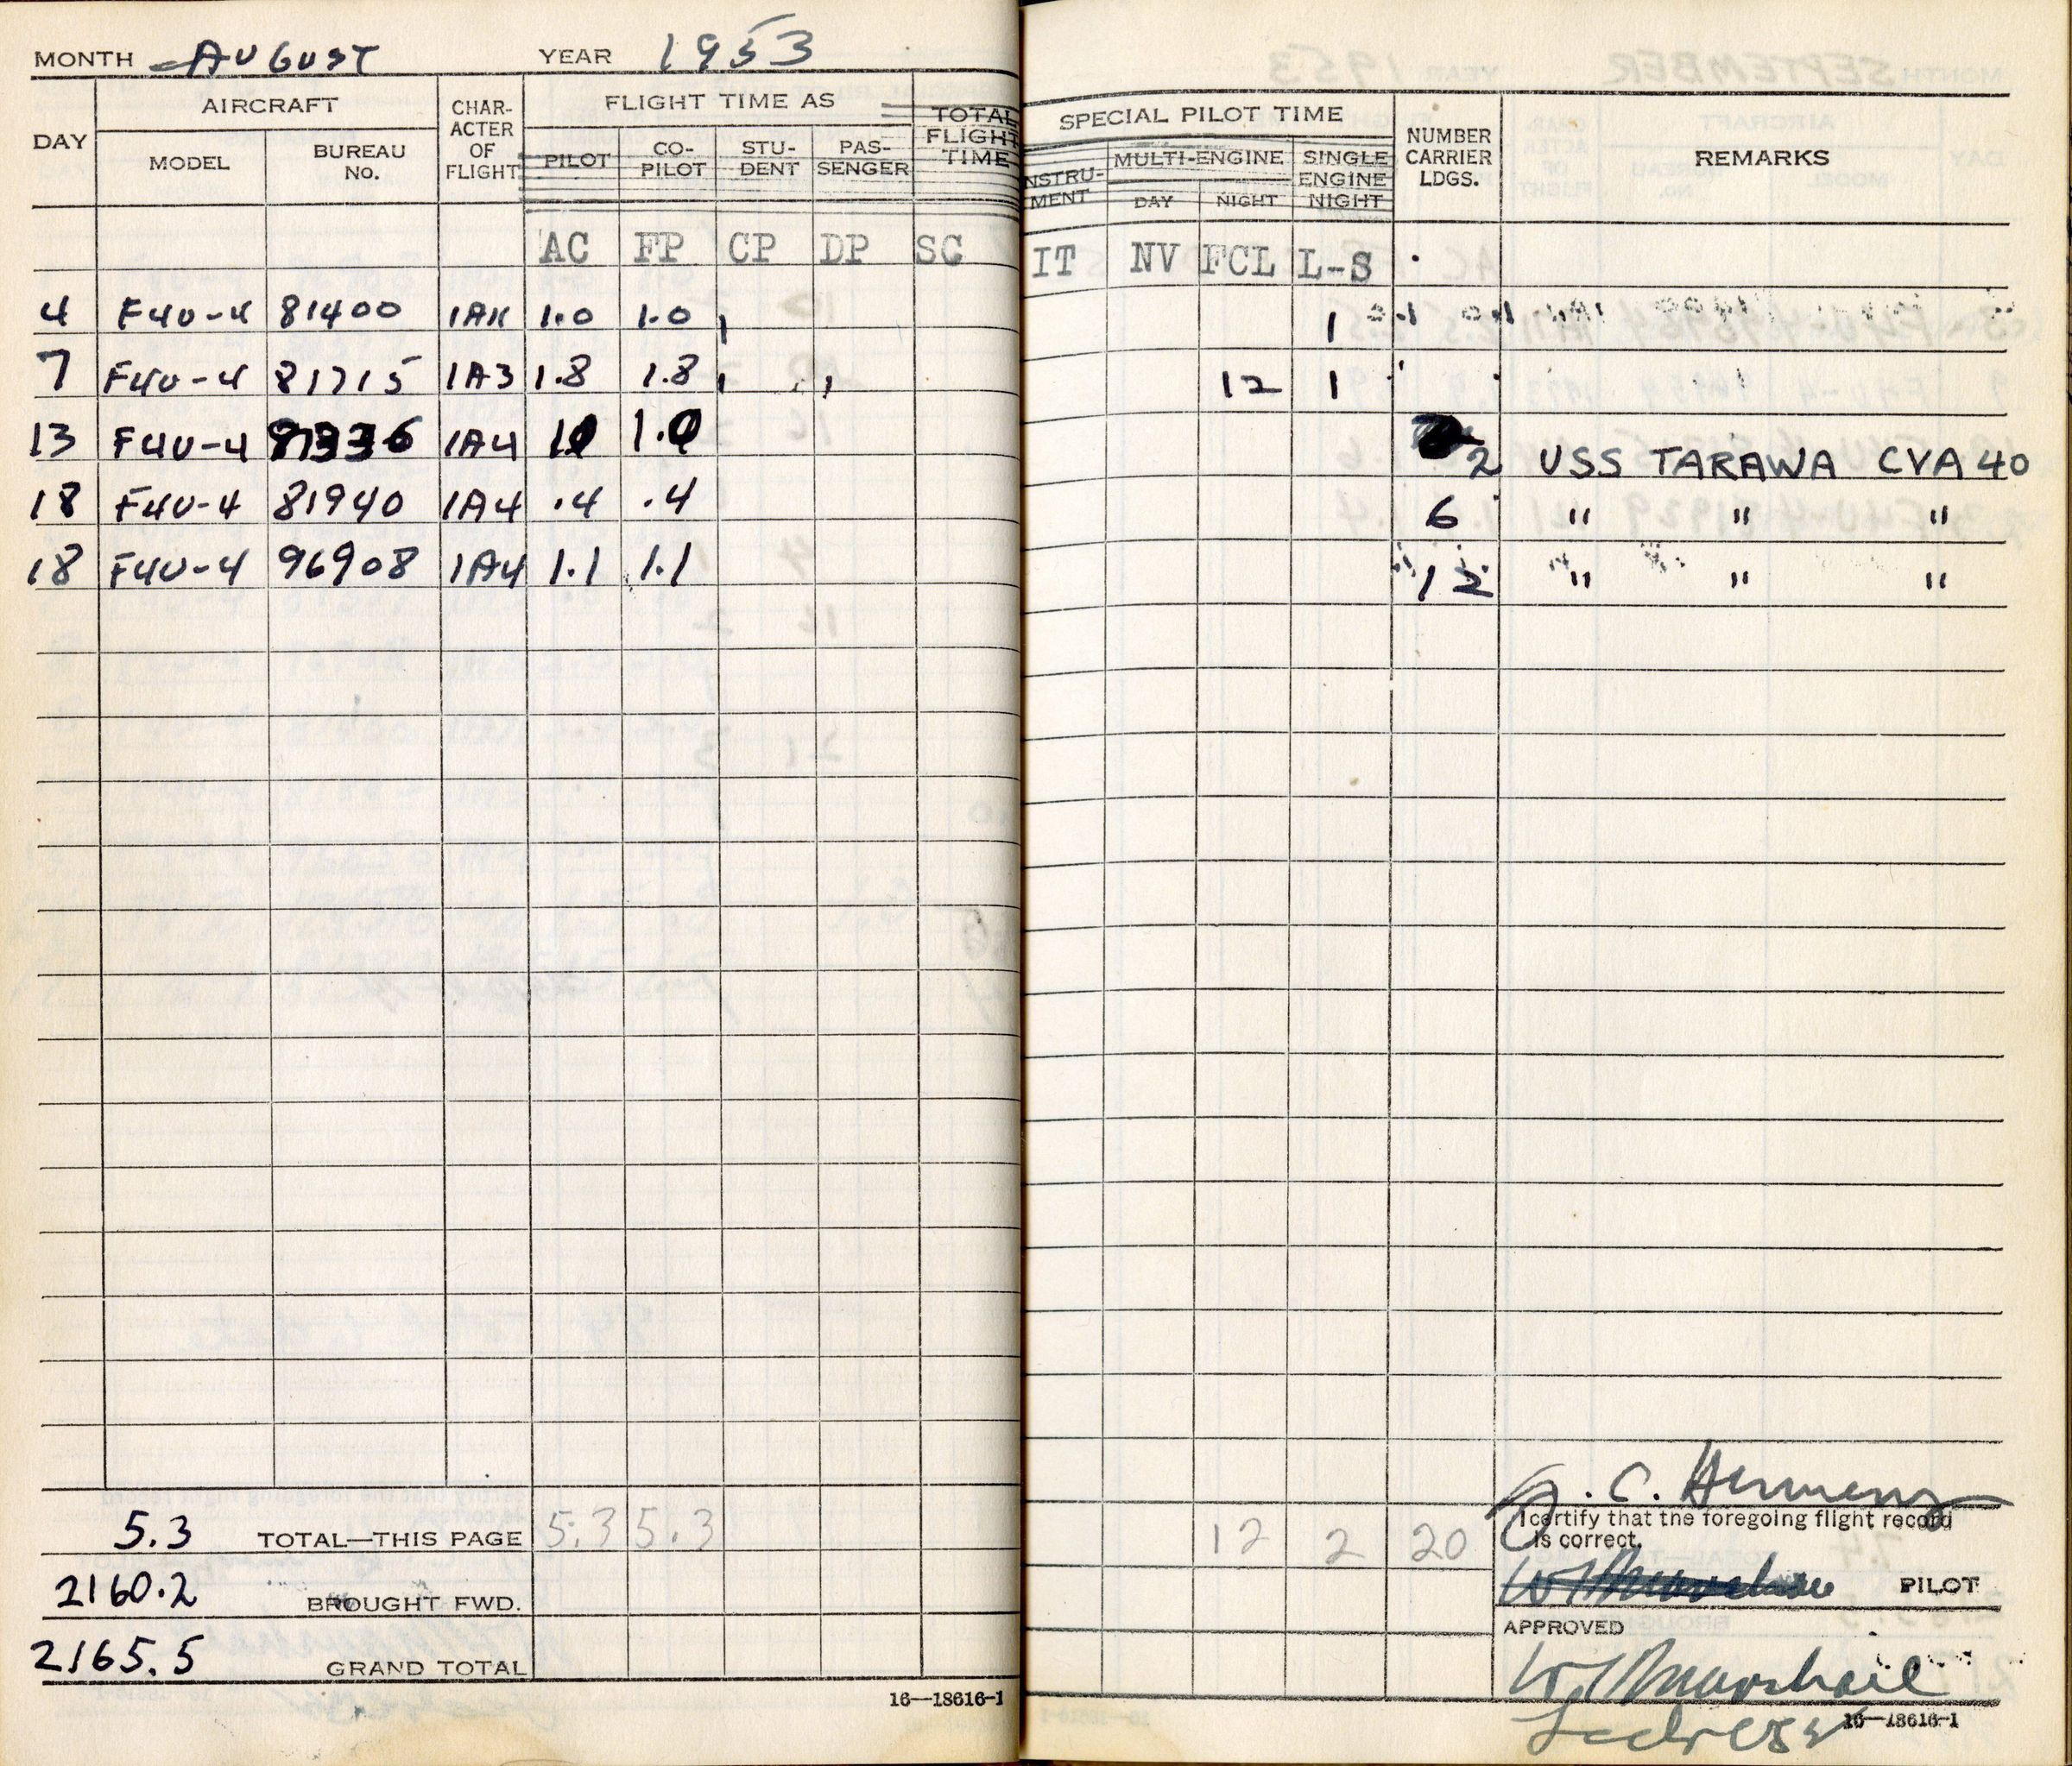 MONTH AUGUST YEAR 1953
DAY AIRCRAFT CHAR-ACTER OF FLIGHT FLIGHT TIME AS TOTAL FLIGHT TIME
MODEL BUREAU No. PILOT CO-PILOT STU-DENT PAS-SENGER
AC FP CP DP SC
4 F4U-4 81400 1.0 1.0
7 F4U-4 81715 1A3 1.8 1.8
13 F4U-4 1A4 1.0 1.0
18 F4U-4 81940 1A4 .4 .4
18 F4U-4 96908 1A4 1.1 1.1
5.3 TOTAL—THIS PAGE 5.3 5.3
2160.2 BROUGHT FWD.
2165.5 GRAND TOTAL
16—18616-1
SPECIAL PILOT TIME NUMBER CARRIER LDGS. REMARKS
INSTRU-MENT MULTI-ENGINE SINGLE ENGINE NIGHT
DAY NIGHT
IT NV FCL L-S
1
12 1
2 USS TARAWA CVA 40
6 " " "
12 " " "
12 2 20
C. Hermens
I certify that the foregoing flight record
is correct.
PILOT
APPROVED
W Marshall
16—18616-1